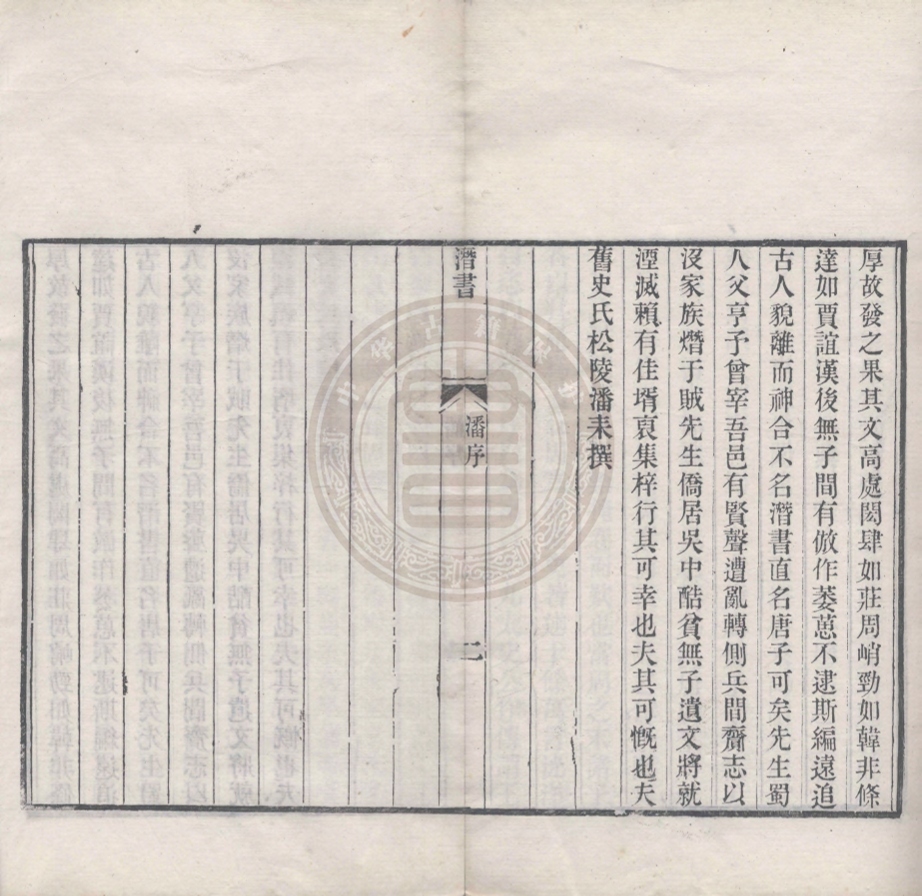 厚故發之果其文高處閎肆如莊周峭勁如韓非條
達如賈誼漢後無子間有倣作萎薾不逮斯編遠追
古人貌離而神合不名潛書直名唐子可矣先生蜀
人父亨予曾宰吾邑有賢聲遭亂轉側兵間齎志以
沒家族熸于賊先生僑居吳中酷貧無子遺文將就
湮滅賴有佳壻裒集梓行其可幸也夫其可慨也夫
舊史氏松陵潘耒撰
潛書
潘序
二